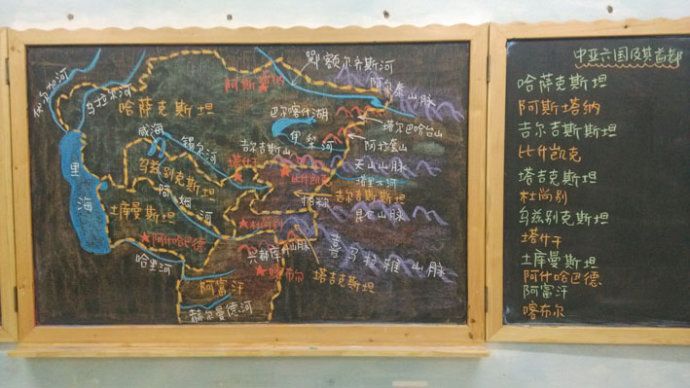 伏尔加河
乌拉尔河
哈萨克斯坦
阿斯塔纳
鄂额尔齐斯河
阿尔泰山脉
巴尔喀什湖
塔尔巴哈台山
伊犁河
阿拉套山
咸海
锡尔河
吉尔吉斯山
塔什干
比什凯克
天山山脉
塔里木河
乌兹别克斯坦
吉尔吉斯斯坦
里海
阿姆河
土库曼斯坦
昆仑山脉
阿什哈巴德
兴都库什山脉
喜马拉雅山脉
哈里河
喀布尔
塔吉克斯坦
阿富汗
赫尔曼德河
中亚六国及其首都
哈萨克斯坦
阿斯塔纳
吉尔吉斯斯坦
比什凯克
塔吉克斯坦
杜尚别
乌兹别克斯坦
塔什干
土库曼斯坦
阿什哈巴德
阿富汗
喀布尔